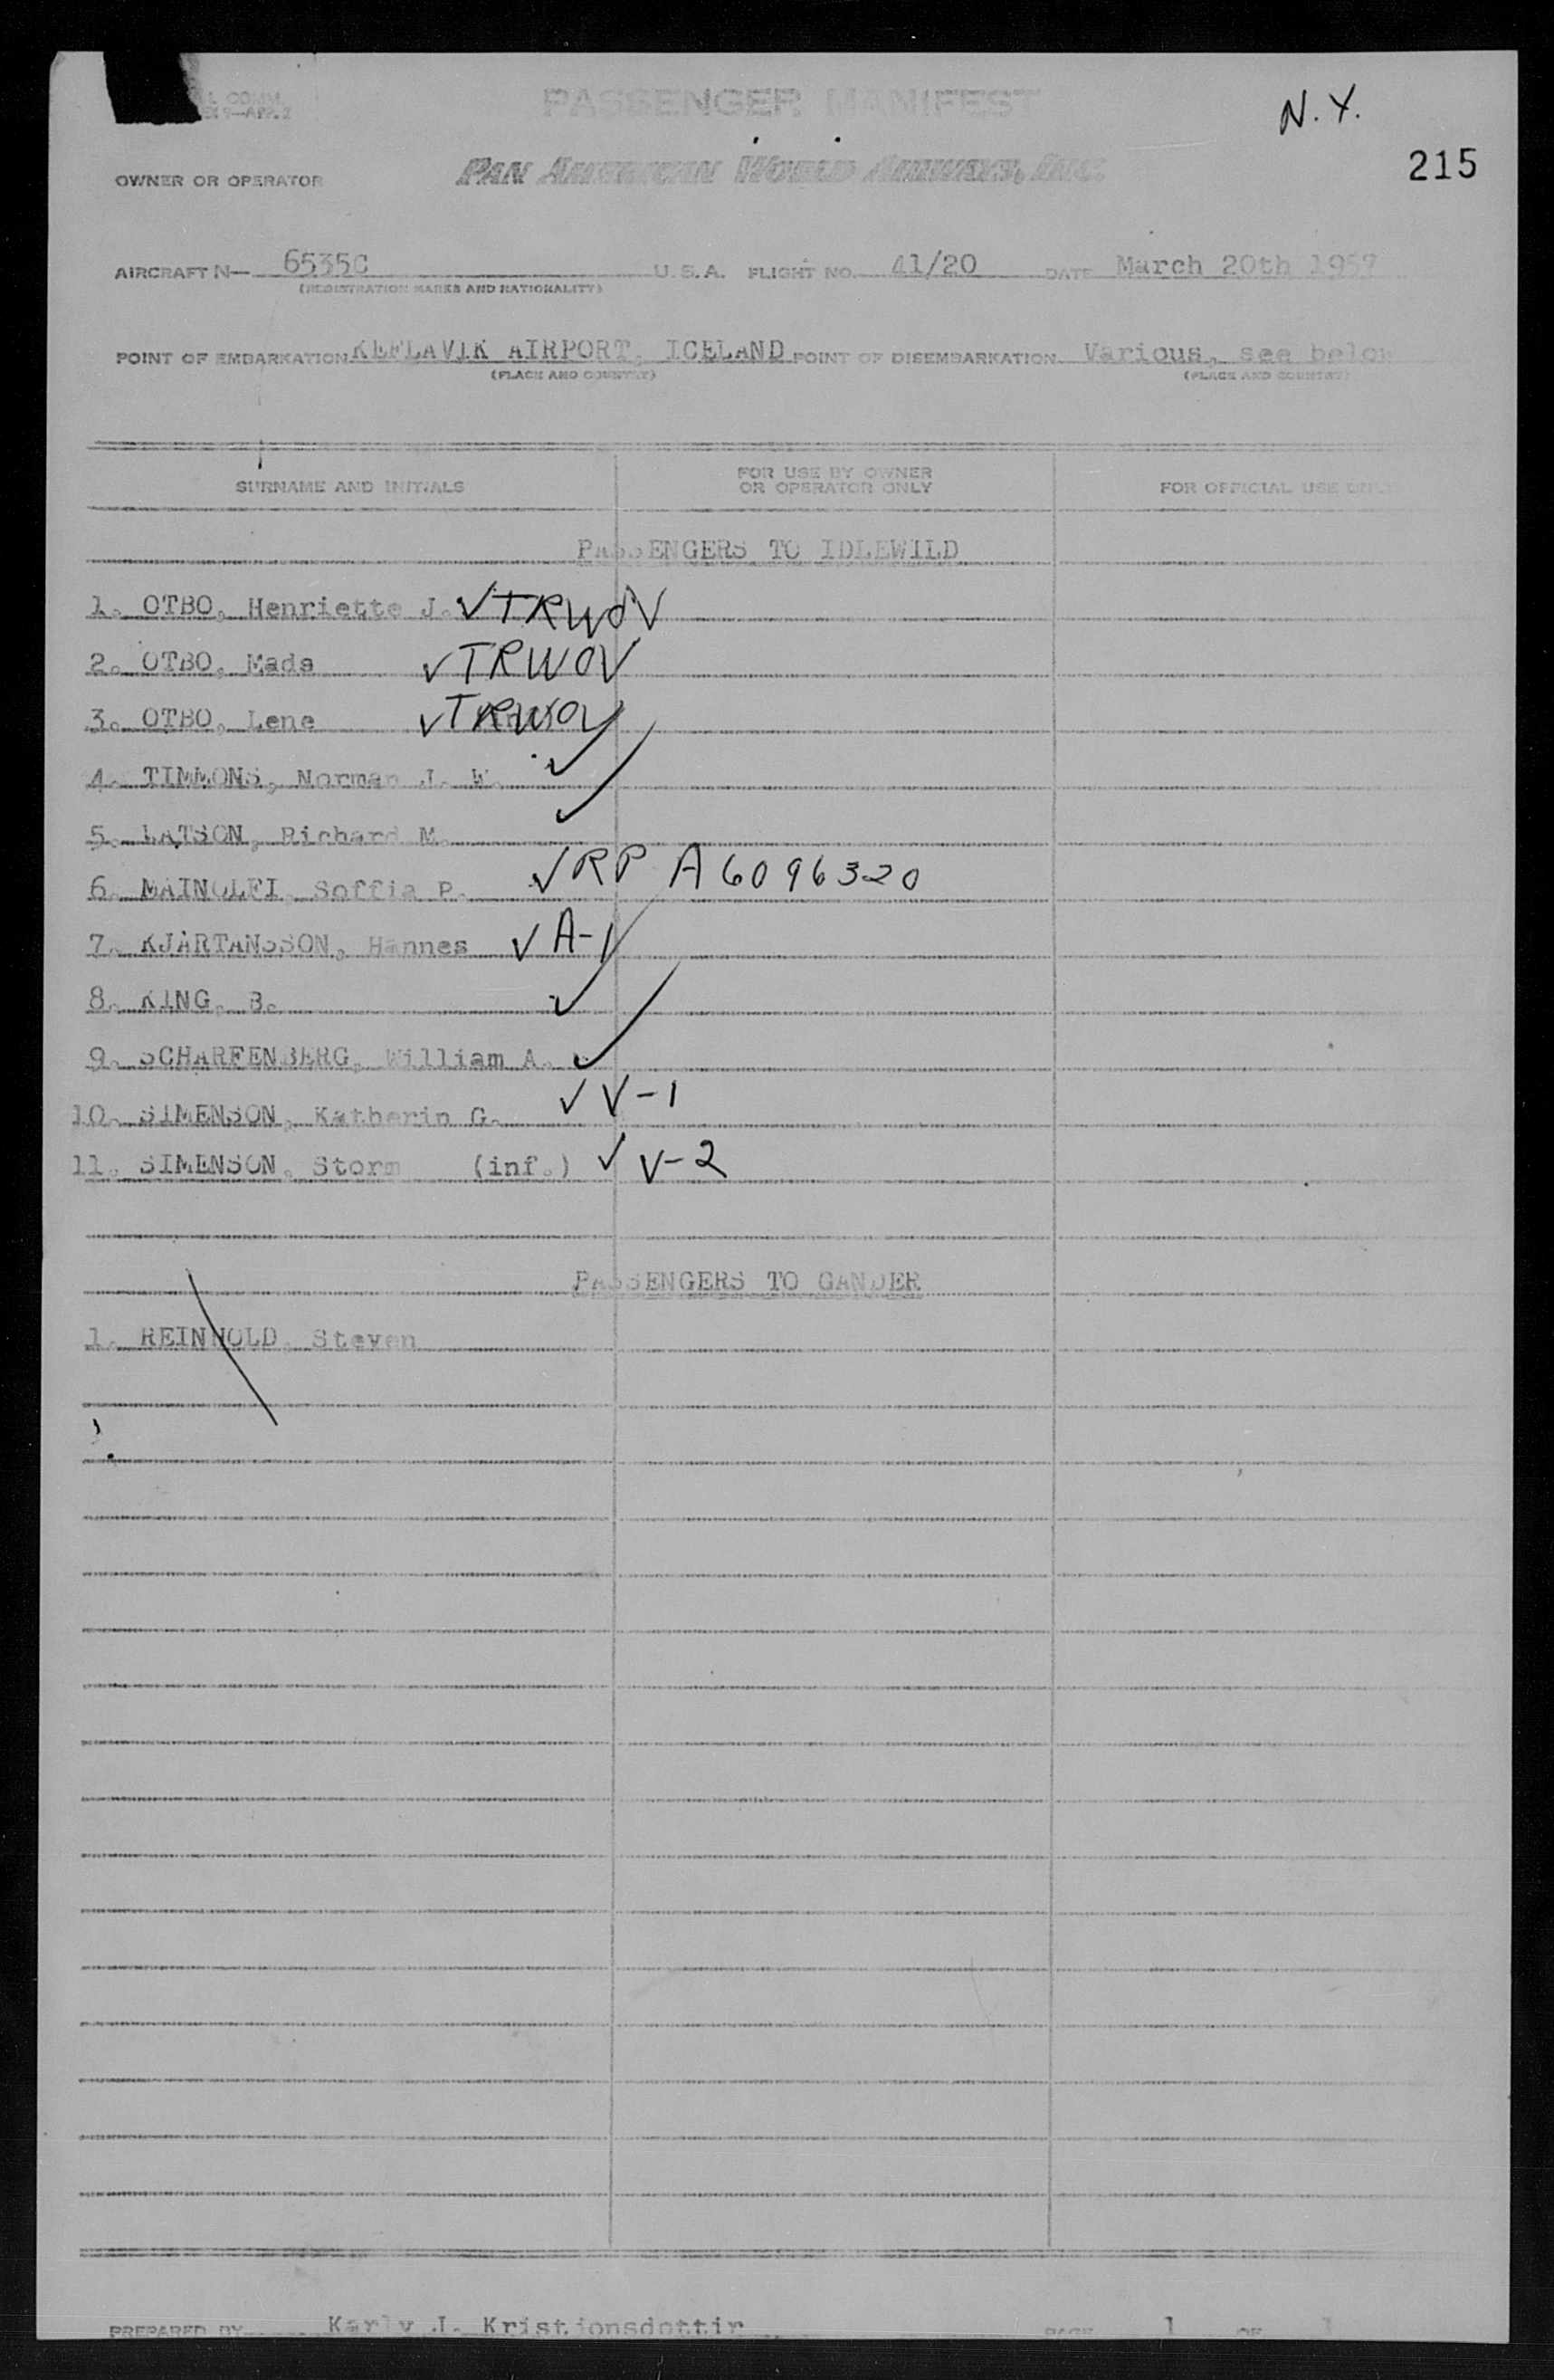 L COMM
PASSENGER MANIFEST
N.Y.
215
OWNER OR OPERATOR PAN AMERICAN WORLD AIRWAYS, INC.
AIRCRAFT N— 6535C U.S.A. FLIGHT NO. 41/20 DATE March 20th 1957
(REGISTRATION MARKS AND NATIONALITY)
POINT OF EMBARKATION KEFLAVIK AIRPORT, ICELAND POINT OF DISEMBARKATION Various, see below
(PLACE AND COUNTRY) (PLACE AND COUNTRY)
SURNAME AND INITIALS FOR USE BY OWNER OR OPERATOR ONLY FOR OFFICIAL USE ONLY
PASSENGERS TO IDLEWILD
1. OTBO, Henriette J. ✓TRWOV
2. OTBO, Mads ✓TRWOV
3. OTBO, Lene ✓TRWOV
4. TIMMONS, Norman J. W. ✓
5. LATSON, Richard M. ✓
6. MAINOLFI, Soffia P. ✓RP A6096320
7. KJARTANSSON, Hannes ✓ A-1
8. KING, B. ✓
9. SCHARFENBERG, William A. ✓
10. SIMENSON, Katherin G. ✓ V-1
11. SIMENSON, Storm (inf.) ✓ V-2
PASSENGERS TO GANDER
1. REINHOLD, Steven
PREPARED BY Karly J. Kristjonsdottir PAGE 1 OF 1